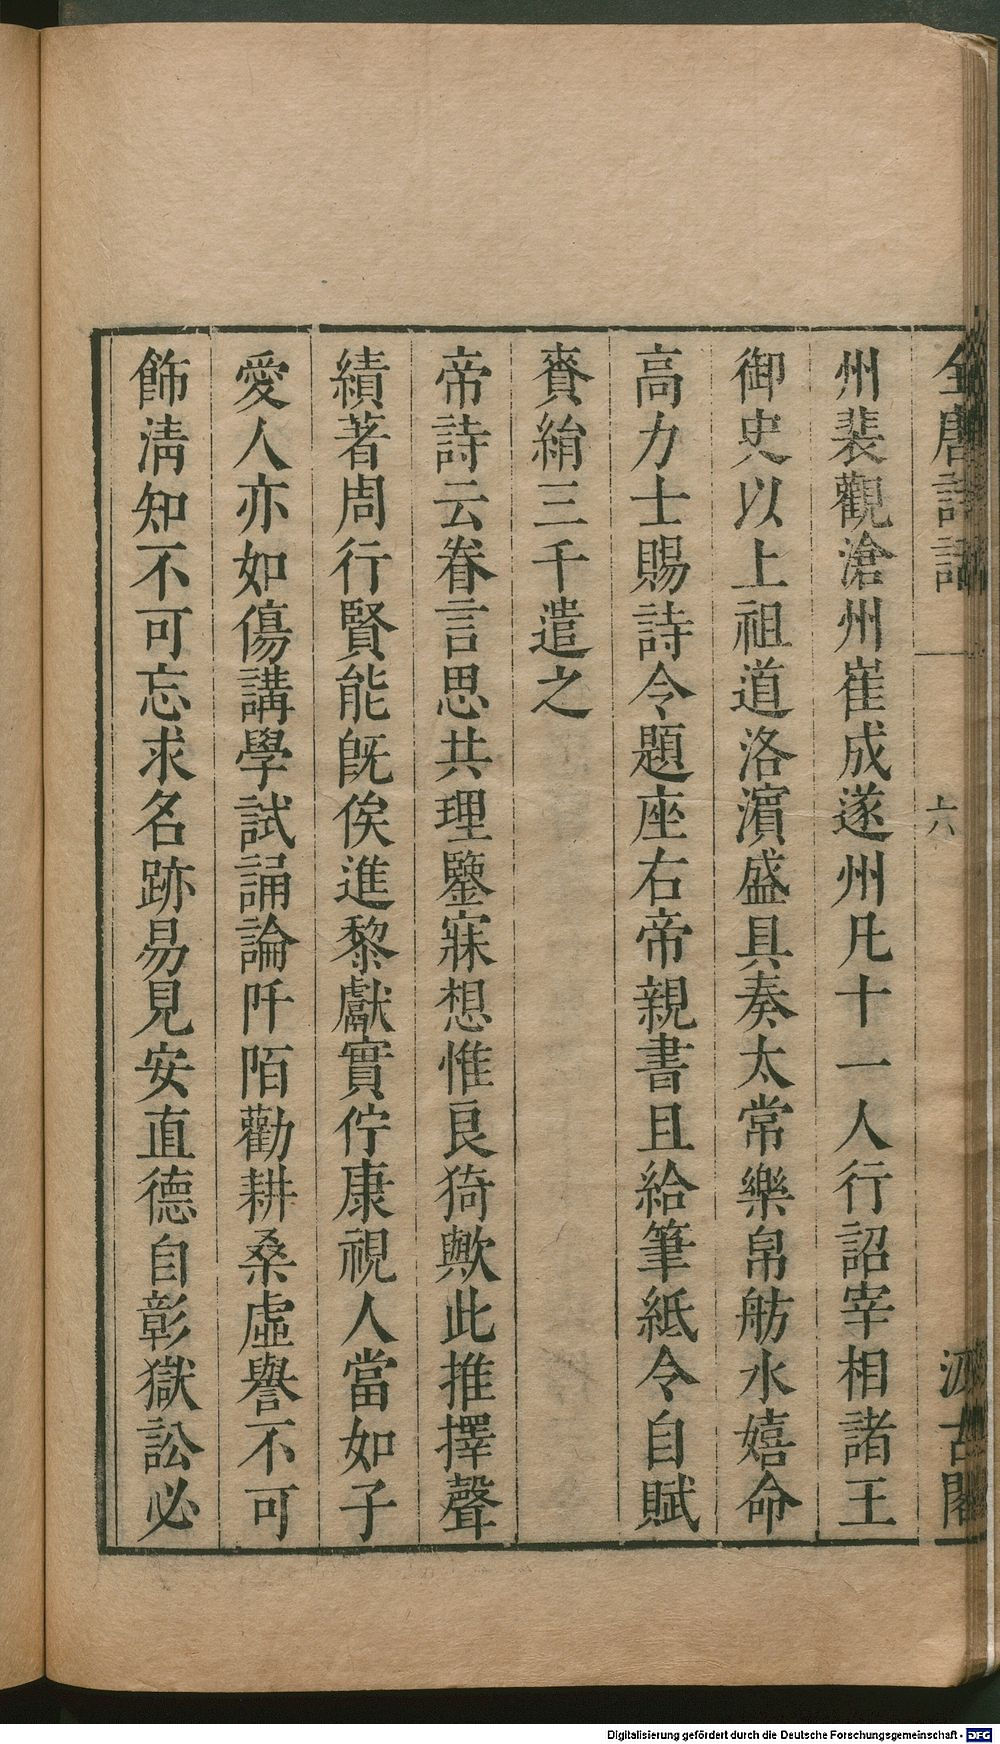 全唐詩話
六
汲古閣
州裴觀滄州崔成遂州凡十一人行詔宰相諸王
御史以上祖道洛濵盛具奏太常樂帛舫水嬉命
高力士賜詩令題座右帝親書且給筆紙令自賦
賚絹三千遣之
帝詩云眷言思共理鑒寐想惟良猗歟此推擇聲
績著周行賢能旣俟進黎獻實佇康視人當如子
愛人亦如傷講學試誦論阡陌勸耕桑虛譽不可
飾淸知不可忘求名跡易見安直德自彰獄訟必
Digitalisierung gefördert durch die Deutsche Forschungsgemeinschaft - DFG